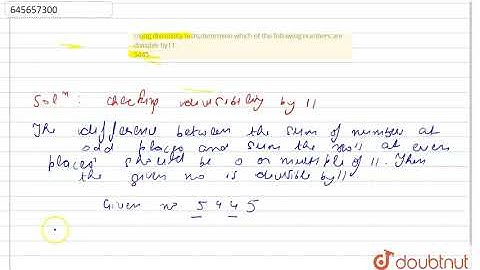 645657300
Using divisibility tests, determine which of the following numbers are
divisible by 11
5445
Solⁿ : checking divisibility by 11
The difference between the sum of number at
odd places and sum the no's at even
places should be 0 or multiple of 11. Then
the given no is divisible by 11
Given no 5 4 4 5
doubtnut